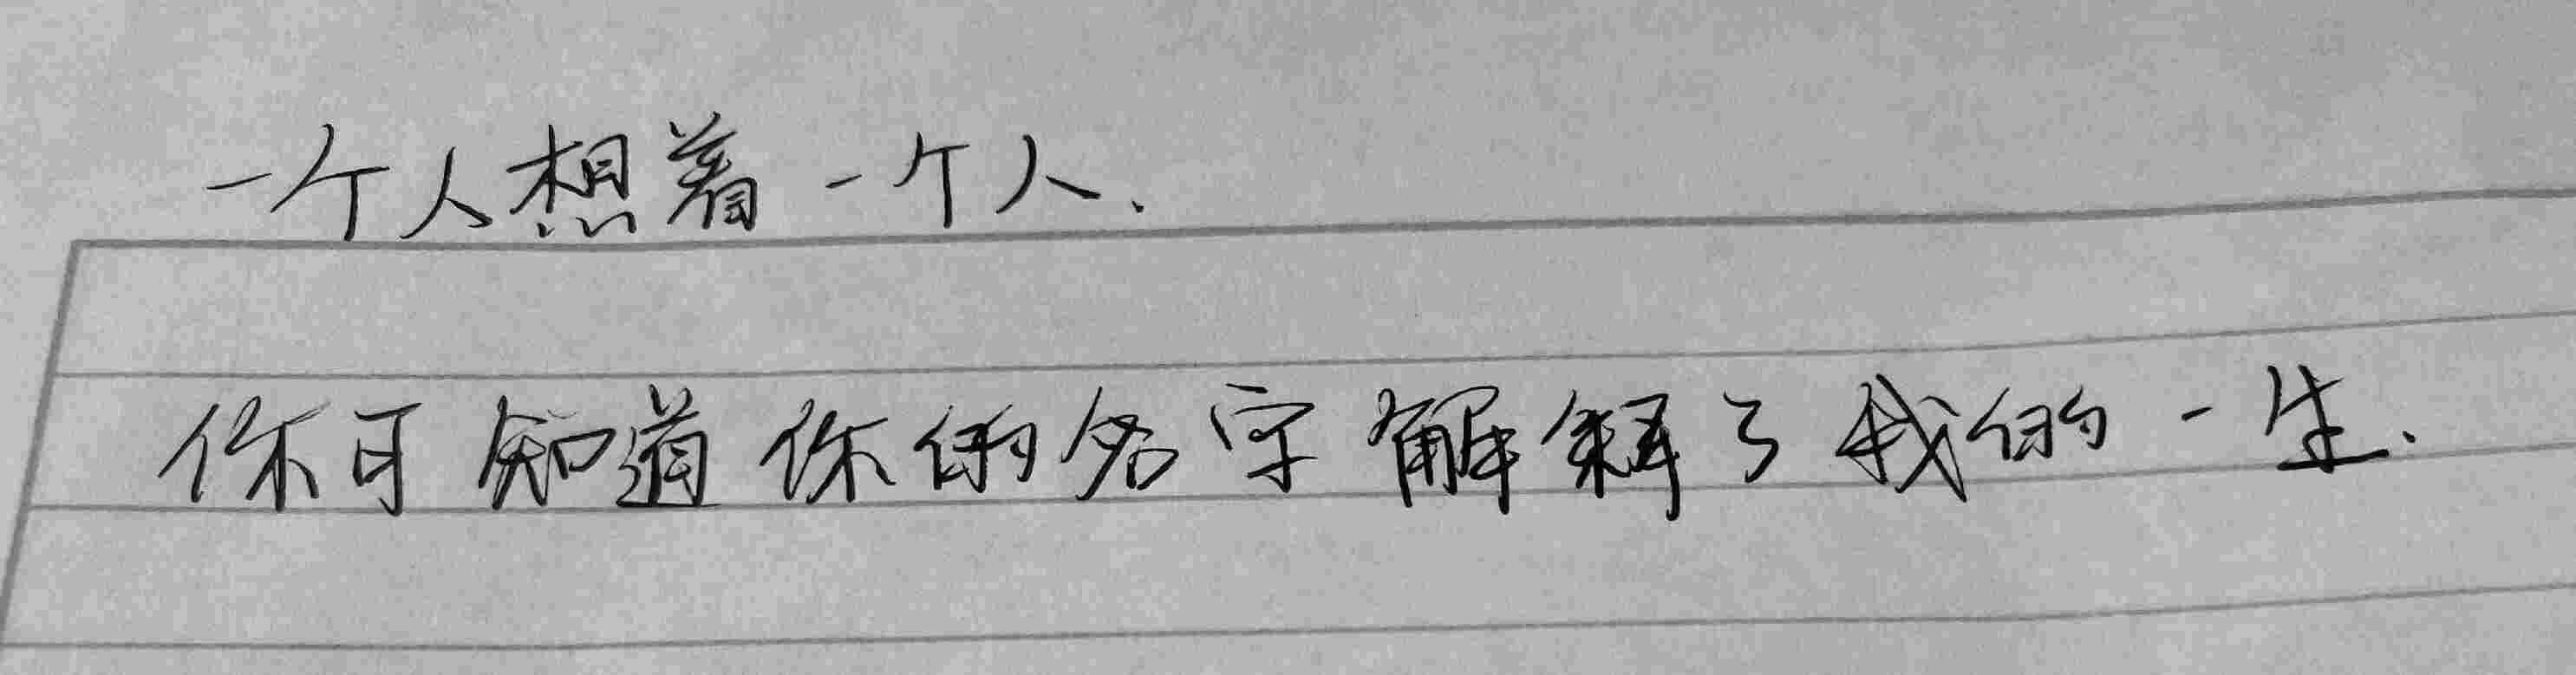 一个人想着一个人.
你可知道你的名字解释了我的一生.